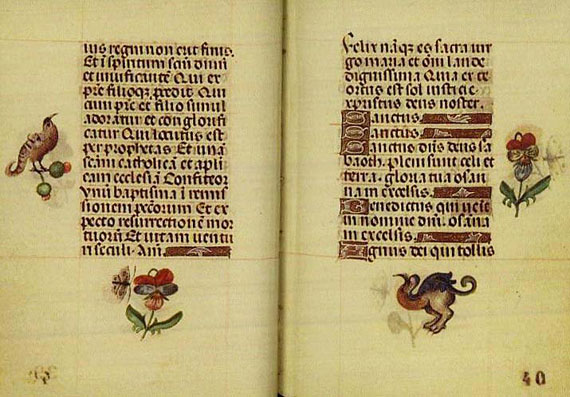 ius regni non erit finis.
Et i spiritum scm dnm
et vivificante Qui ex
pre filioqz procedit Qui
cum pre et filio simul
adoratur et con glorifi
catur Qui locutus est
per prophetas Et una
scam catholicā et apli
cam ecclesiā Confiteor
Unū baptisma i remis
sionem pctorum Et ex
pecto resurrectionē mor
tuorū Et vitam ventu
ri seculi. Am.
Felix naqz es sacra vir
go maria et oni laude
dignissima Quia ex te
ortus est sol iusticie
xpristus deus noster.
Sanctus
Sanctus
Sanctus dns deus sa
baoth. pleni sunt celi et
terra. gloria tua osan
na in excelsis.
Benedictus qui venit
in nomine dni. osana
in excelsis.
Agnus dei qui tollis
40